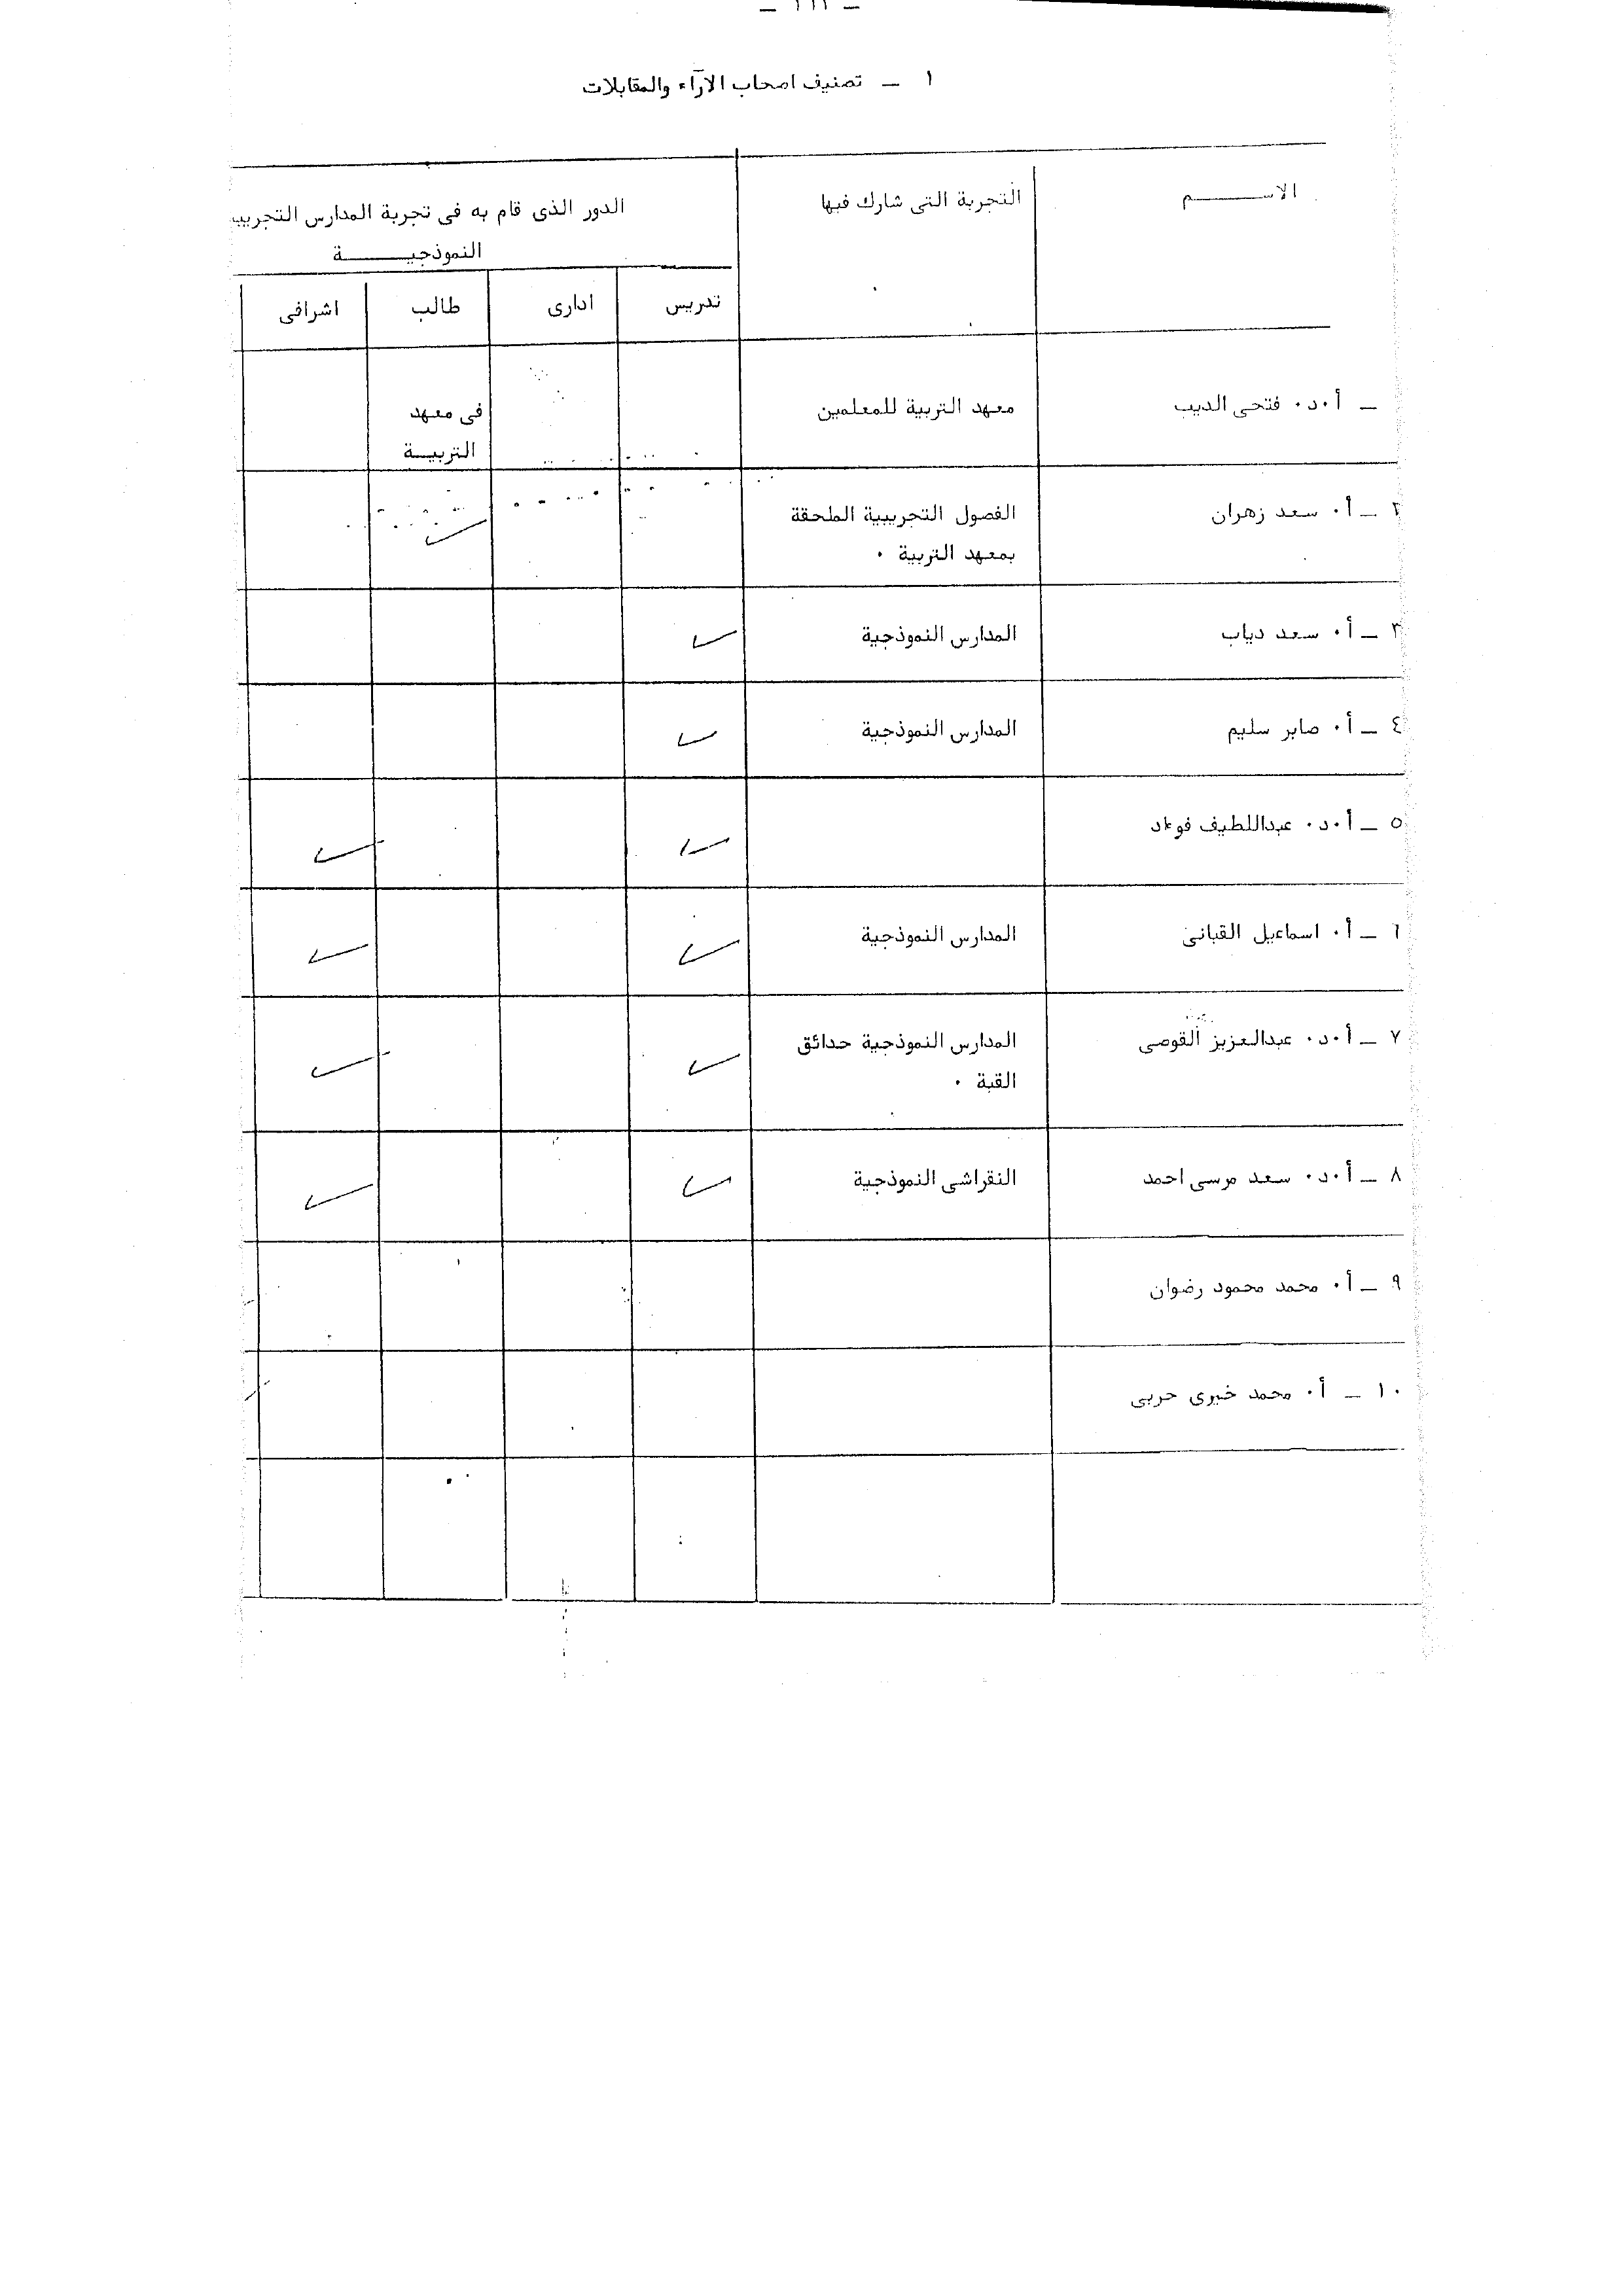 ١ ـ تصنيف اصحاب الآراء والمقابلات
الاســـم
التجربة التى شارك فيها
الدور الذى قام به فى تجربة المدارس
النموذجيـــة
تدريس
ادارى
طالب
اشرافى
ـ أ٠د٠ فتحى الديب
معهد التربية للمعلمين
فى معهد
التربيــة
٢ ـ أ٠ سعد زهران
الفصول التجريبية الملحقة
بمعهد التربية ٠
✓
٣ ـ أ٠ سعد دياب
المدارس النموذجية
✓
٤ ـ أ٠ صابر سليم
المدارس النموذجية
✓
٥ ـ أ٠د٠ عبداللطيف فوءاد
✓
✓
٦ ـ أ٠ اسماعيل القبانى
المدارس النموذجية
✓
✓
٧ ـ أ٠د٠ عبدالعزيز القوصى
المدارس النموذجية حدائق
القبة ٠
✓
✓
٨ ـ أ٠د٠ سعد مرسى احمد
النقراشى النموذجية
✓
✓
٩ ـ أ٠ محمد محمود رضوان
١٠ ـ أ٠ محمد خيرى حربى